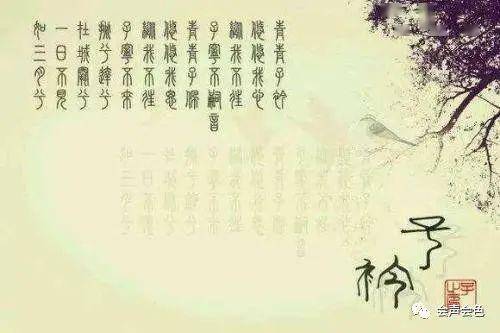 青青子衿
悠悠我心
縱我不往
子寧不嗣音
青青子佩
悠悠我思
縱我不往
子寧不來
挑兮達兮
在城闕兮
一日不見
如三月兮
子衿
会声会色